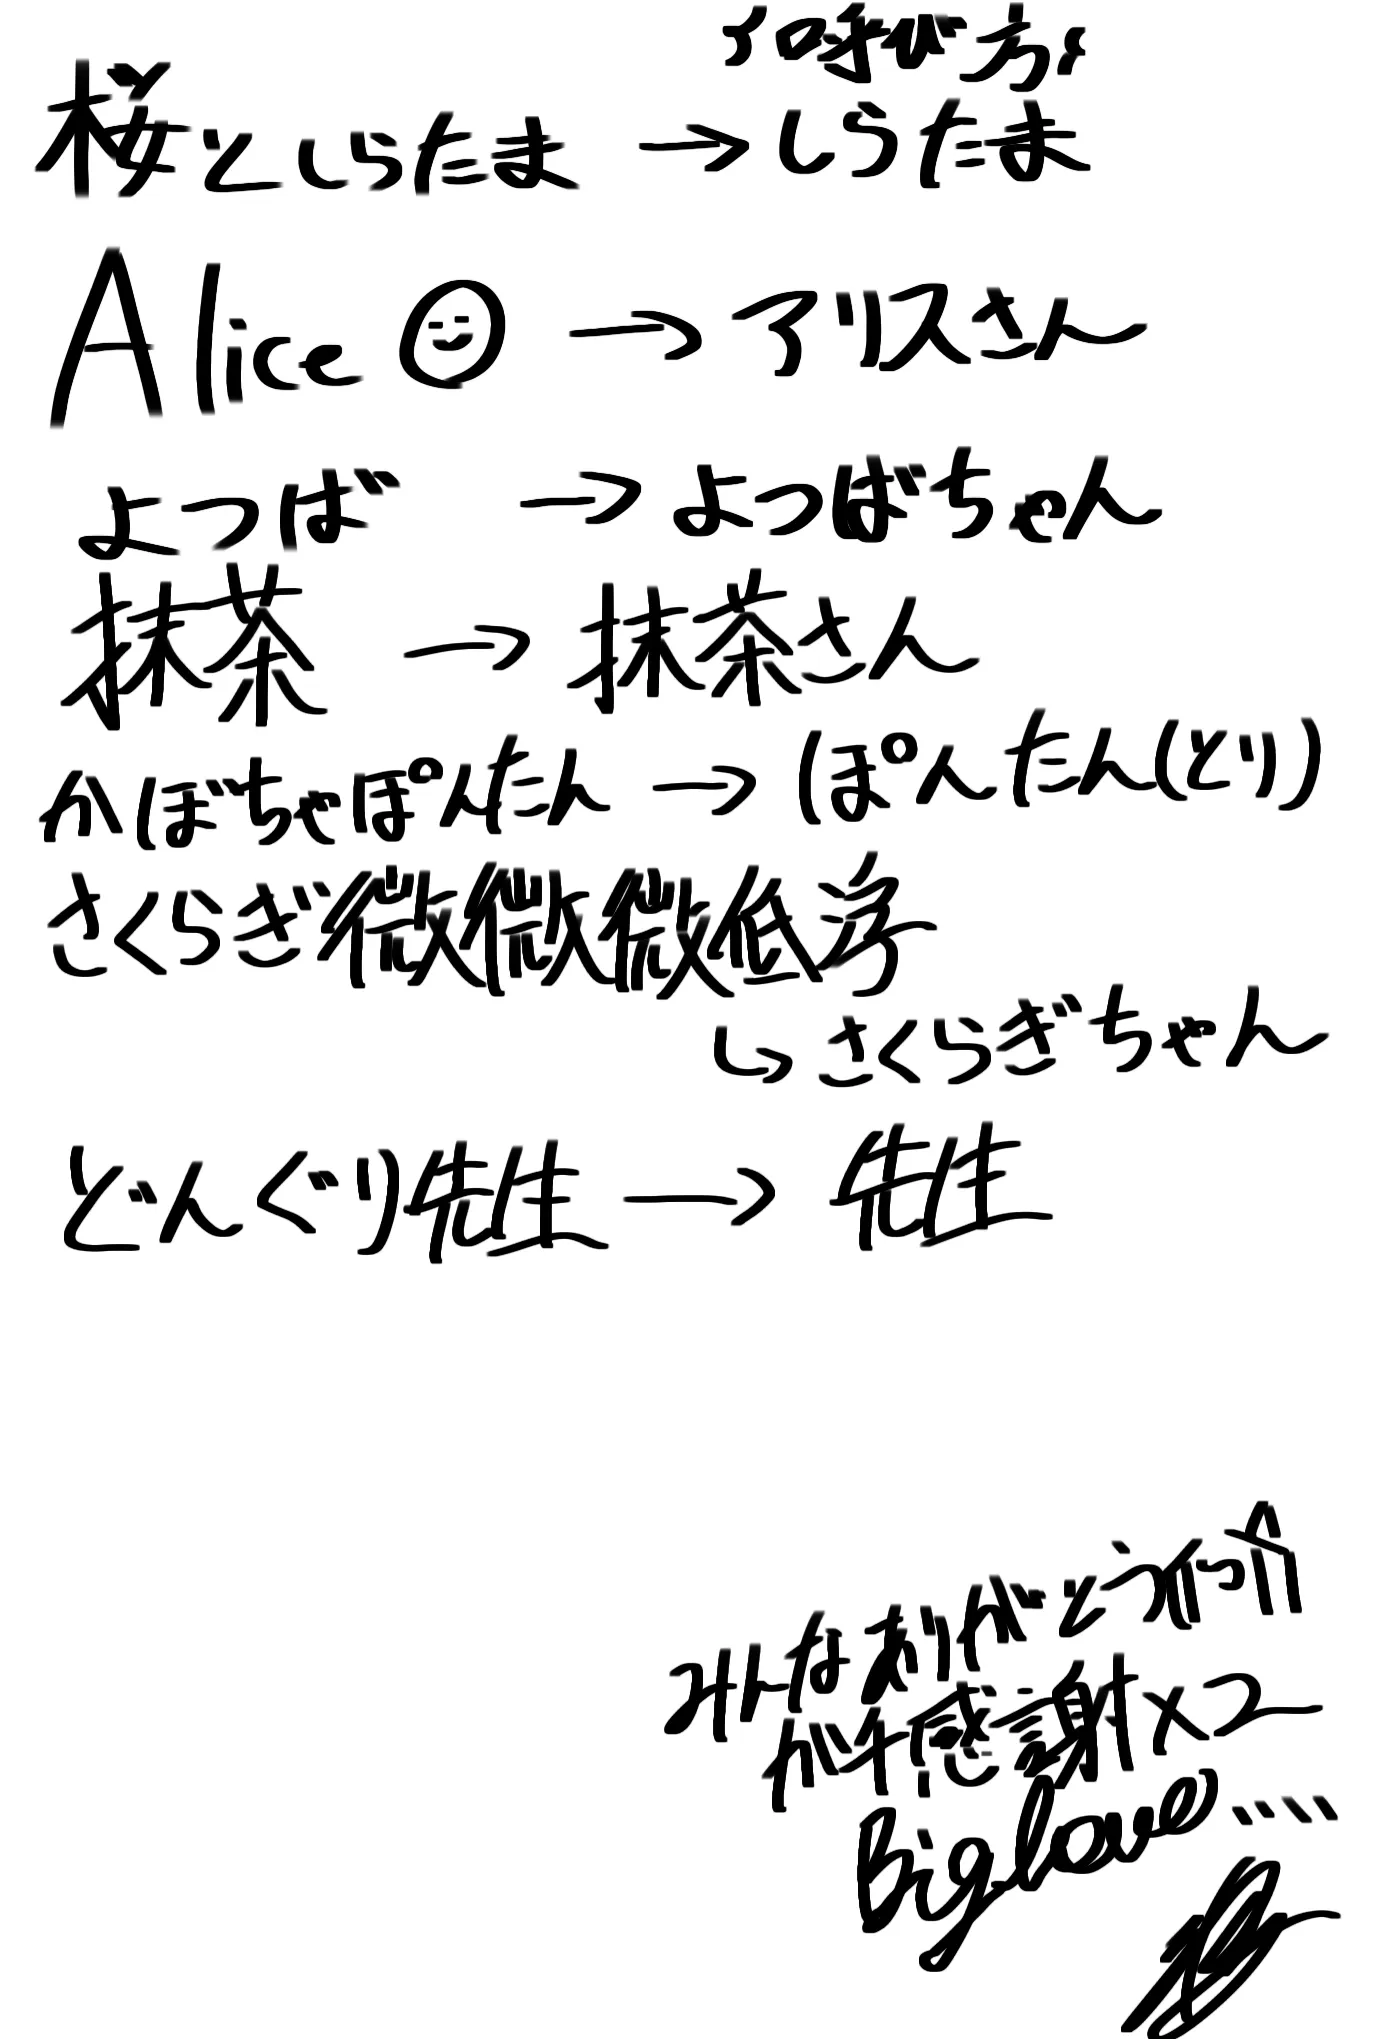 呼び方
桜としらたま → しらたま
Alice → アリスさん
よつば → よつばちゃん
抹茶 → 抹茶さん
かぼちゃぽんたん → ぽんたん(とり)
さくらぎ微微微低浮
↳ さくらぎちゃん
どんぐり先生 → 先生
みんなありがとう
ガチ感謝×2
Big love